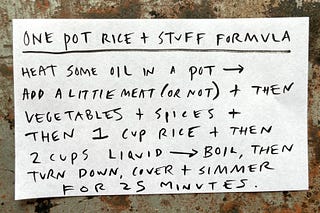 ONE POT RICE + STUFF FORMULA
HEAT SOME OIL IN A POT →
ADD A LITTLE MEAT (OR NOT) + THEN
VEGETABLES + SPICES +
THEN 1 CUP RICE + THEN
2 CUPS LIQUID → BOIL, THEN
TURN DOWN, COVER + SIMMER
FOR 25 MINUTES.